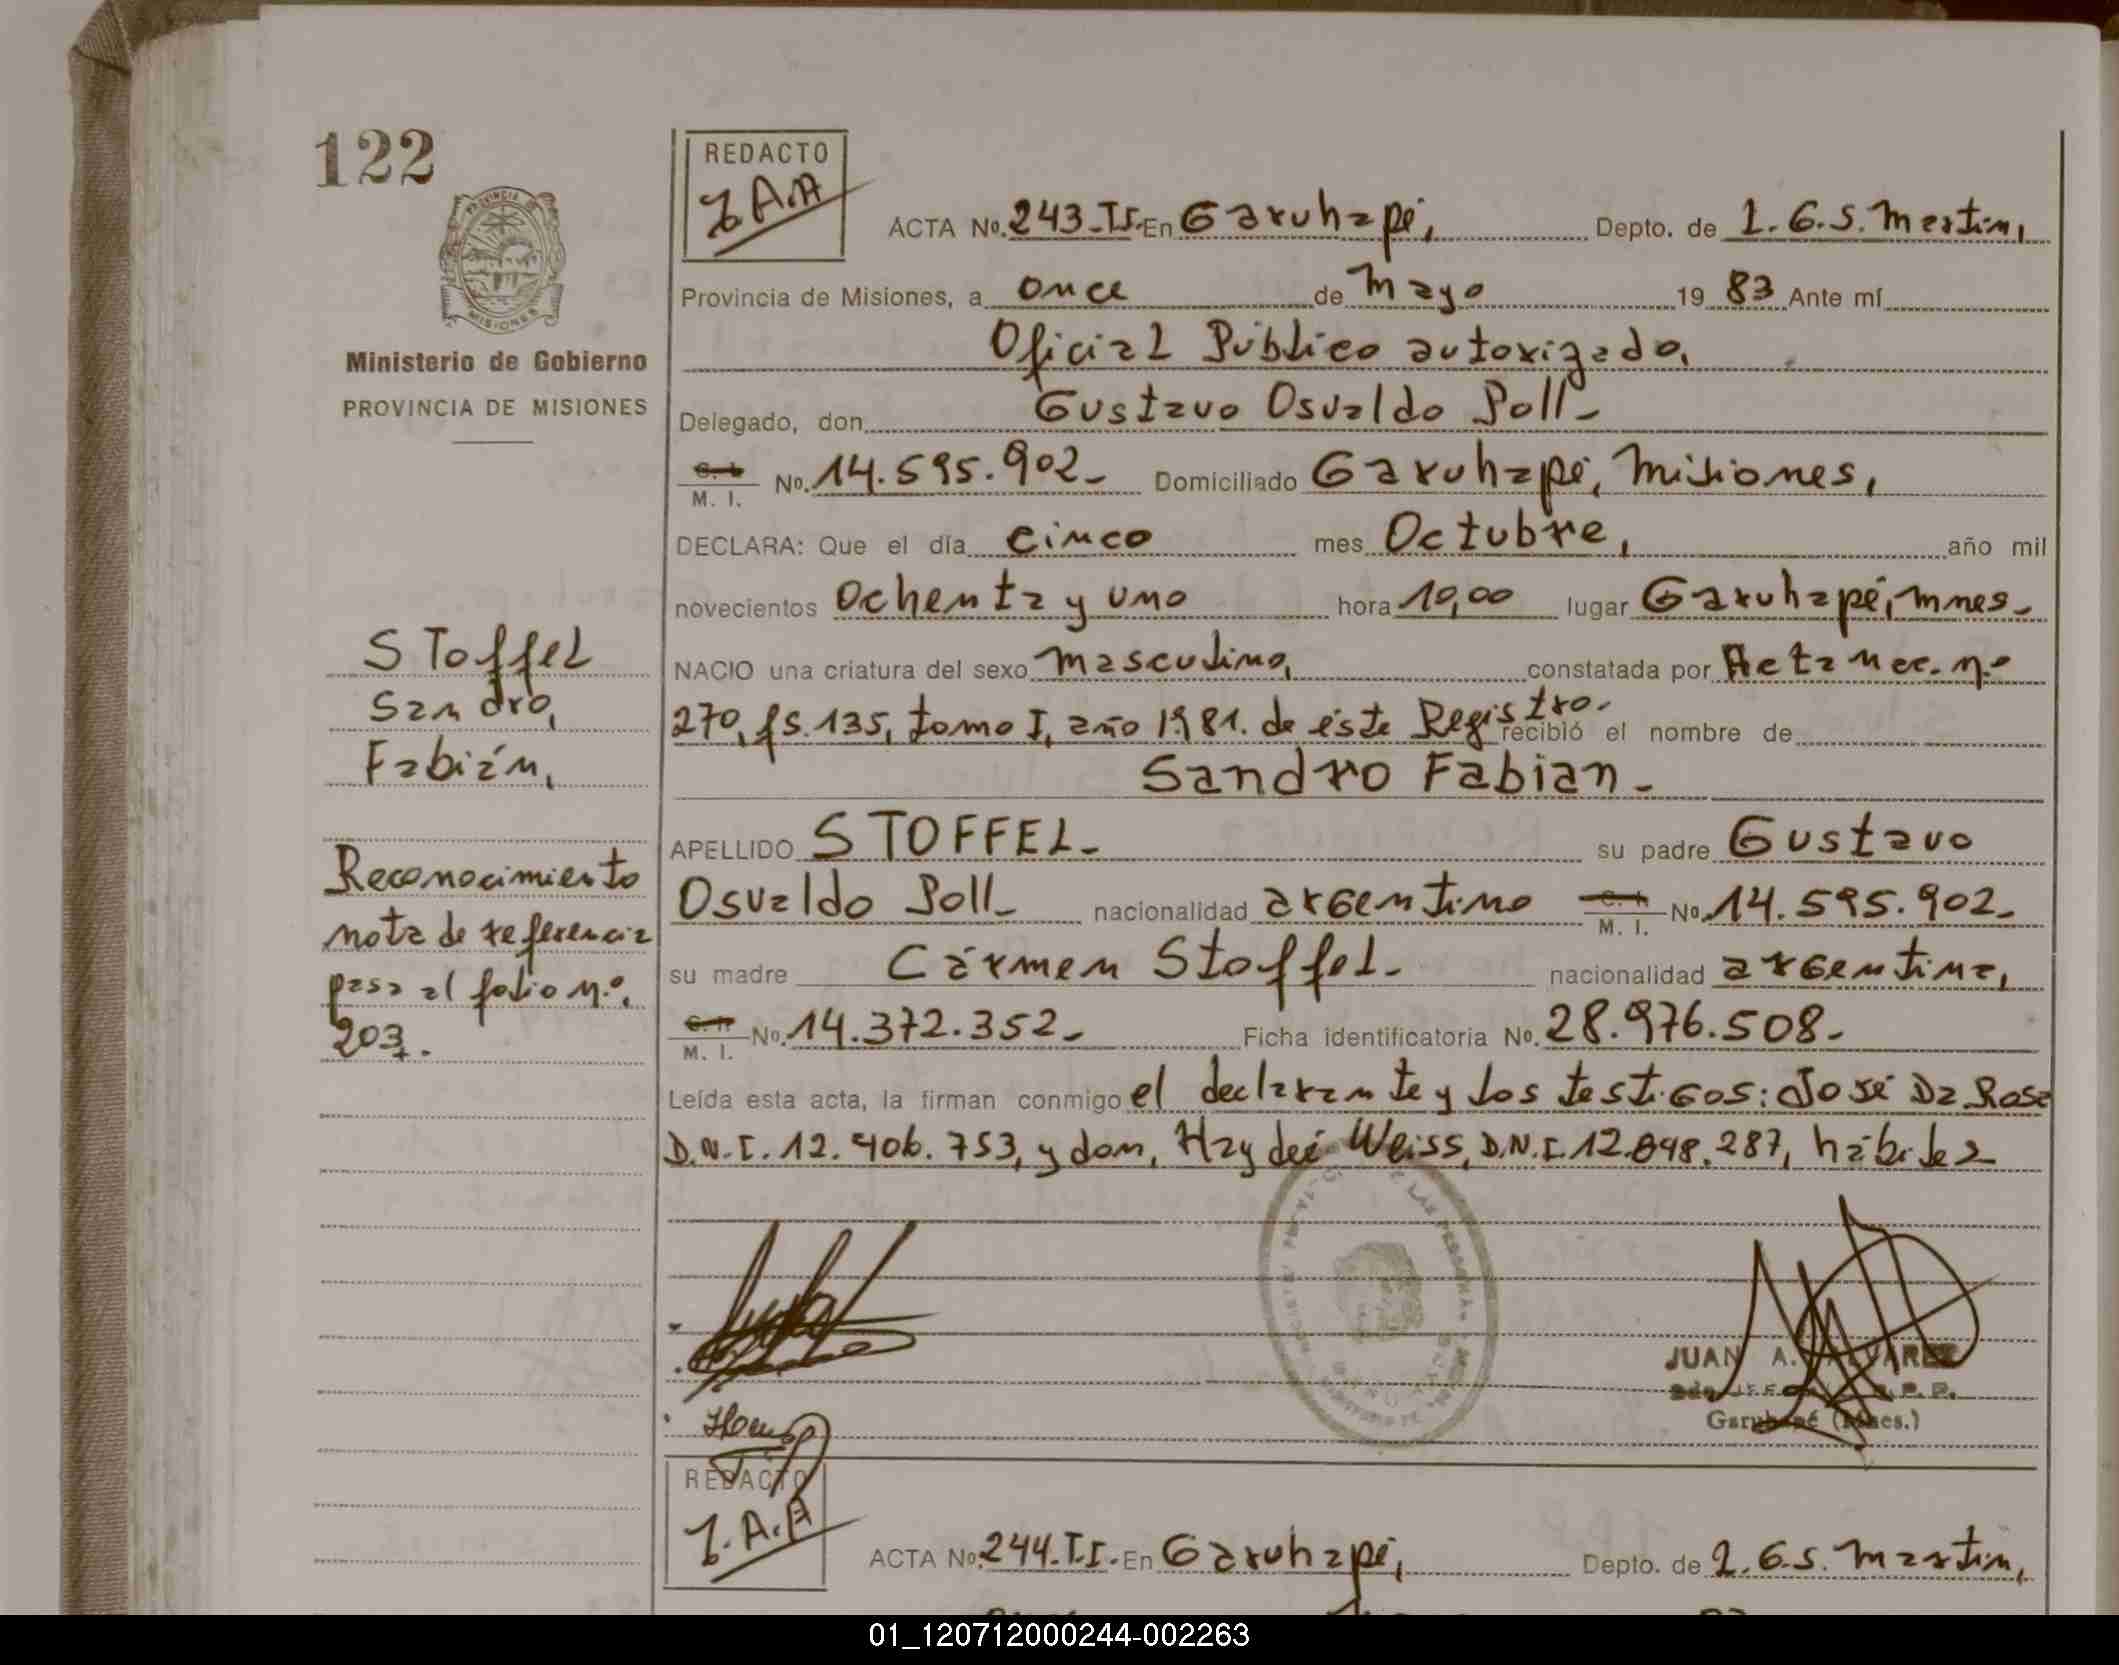 122
PROVINCIA DE
MISIONES
Ministerio de Gobierno
PROVINCIA DE MISIONES
REDACTO
J.A.A
ACTA No. 243-TI-En Garuhapé, Depto. de L.G.S. Martin,
Provincia de Misiones, a once de Mayo 19 83 Ante mí
Oficial Público autorizado,
Delegado, don Gustavo Osvaldo Poll-
M. I. No. 14.595.902- Domiciliado Garuhapé, Misiones,
DECLARA: Que el día cinco mes Octubre, año mil
novecientos Ochenta y uno hora 10,00 lugar Garuhapé, Mnes-
NACIO una criatura del sexo masculino, constatada por Acta nec. nº
270, fs. 135, tomo I, año 1981. de éste Registro. recibió el nombre de
Sandro Fabian-
APELLIDO STOFFEL- su padre Gustavo
Osvaldo Poll- nacionalidad argentino M. I. No. 14.595.902-
su madre Cármen Stoffel- nacionalidad argentina,
M. I. No. 14.372.352- Ficha identificatoria No. 28.976.508-
Leída esta acta, la firman conmigo el declarante y los testigos: José Da Rosa
D.N.I. 12.406.753, y don, Haydeé Weiss, D.N.I. 12.848.287, hábiles
STOFFEL
Sandro,
Fabián,
Reconocimiento
nota de referencia
pasa al folio nº.
203.
JUAN A. ALVAREZ
Garuhapé (Mnes.)
REDACTO
J.A.A
ACTA No. 244.T.I.-En Garuhapé, Depto. de L.G.S. Martin,
01_120712000244-002263